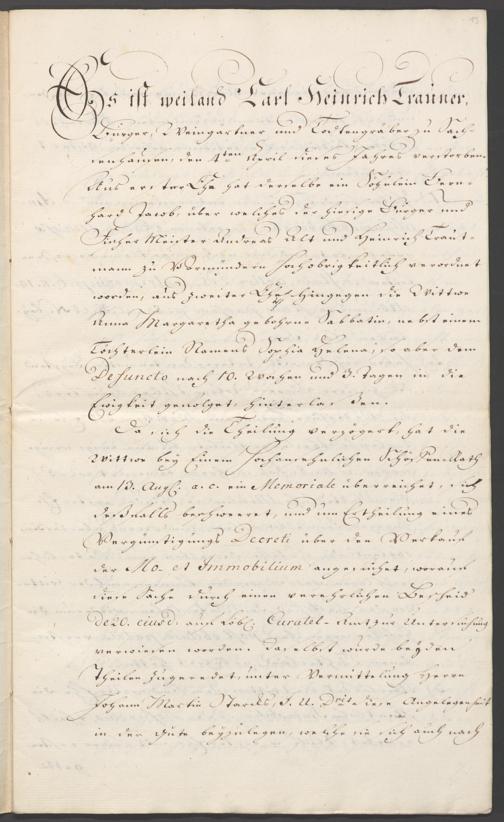 Es ist weiland Carl Heinrich Trauner,
Burger, Weingartner und Todtengräber zu Sach-
senhausen, den 4ten April dieses Jahres verstorben.
Aus erster Ehe hat derselbe ein Söhnlein Bern-
hard Jacob, über welches der hiesige Burger und
Fischer Meister Andreas Alt und Heinrich Traut-
mann zu Vormündern hochobrigkeitlich verordnet
worden, aus zweiter Ehe hingegen die Wittwe
Anna Margaretha gebohrne Sabbatin, nebst einem
Töchterlein Namens Sophia Helena, so aber dem
Defuncto nach 10. Wochen und 3. Tagen in die
Ewigkeit gefolget, hinterlassen.
Da sich die Theilung verzögert, hat die
Wittwe bey Einem Hochansehnlichen Schöffen Rath
am 13. Aug: a. c. ein Memoriale überreichet, sich
desfalls beschweret, und um Ertheilung eines
Vergünstigungs Decreti über den Verkauf
der Mo- et Immobilium angesuchet, worauf
diese Sache durch einen verehrlichen Bescheid
de 20. eiusd. ans Löbl: Curatel-Amt zur Untersuchung
verwiesen worden. Daselbst wurde beyden
Theilen zugeredet, unter Vermittelung Herrn
Johann Martin Starcks, J. U. Dris diese Angelegenheit
in der Güte beyzulegen, welche sie sich auch nach